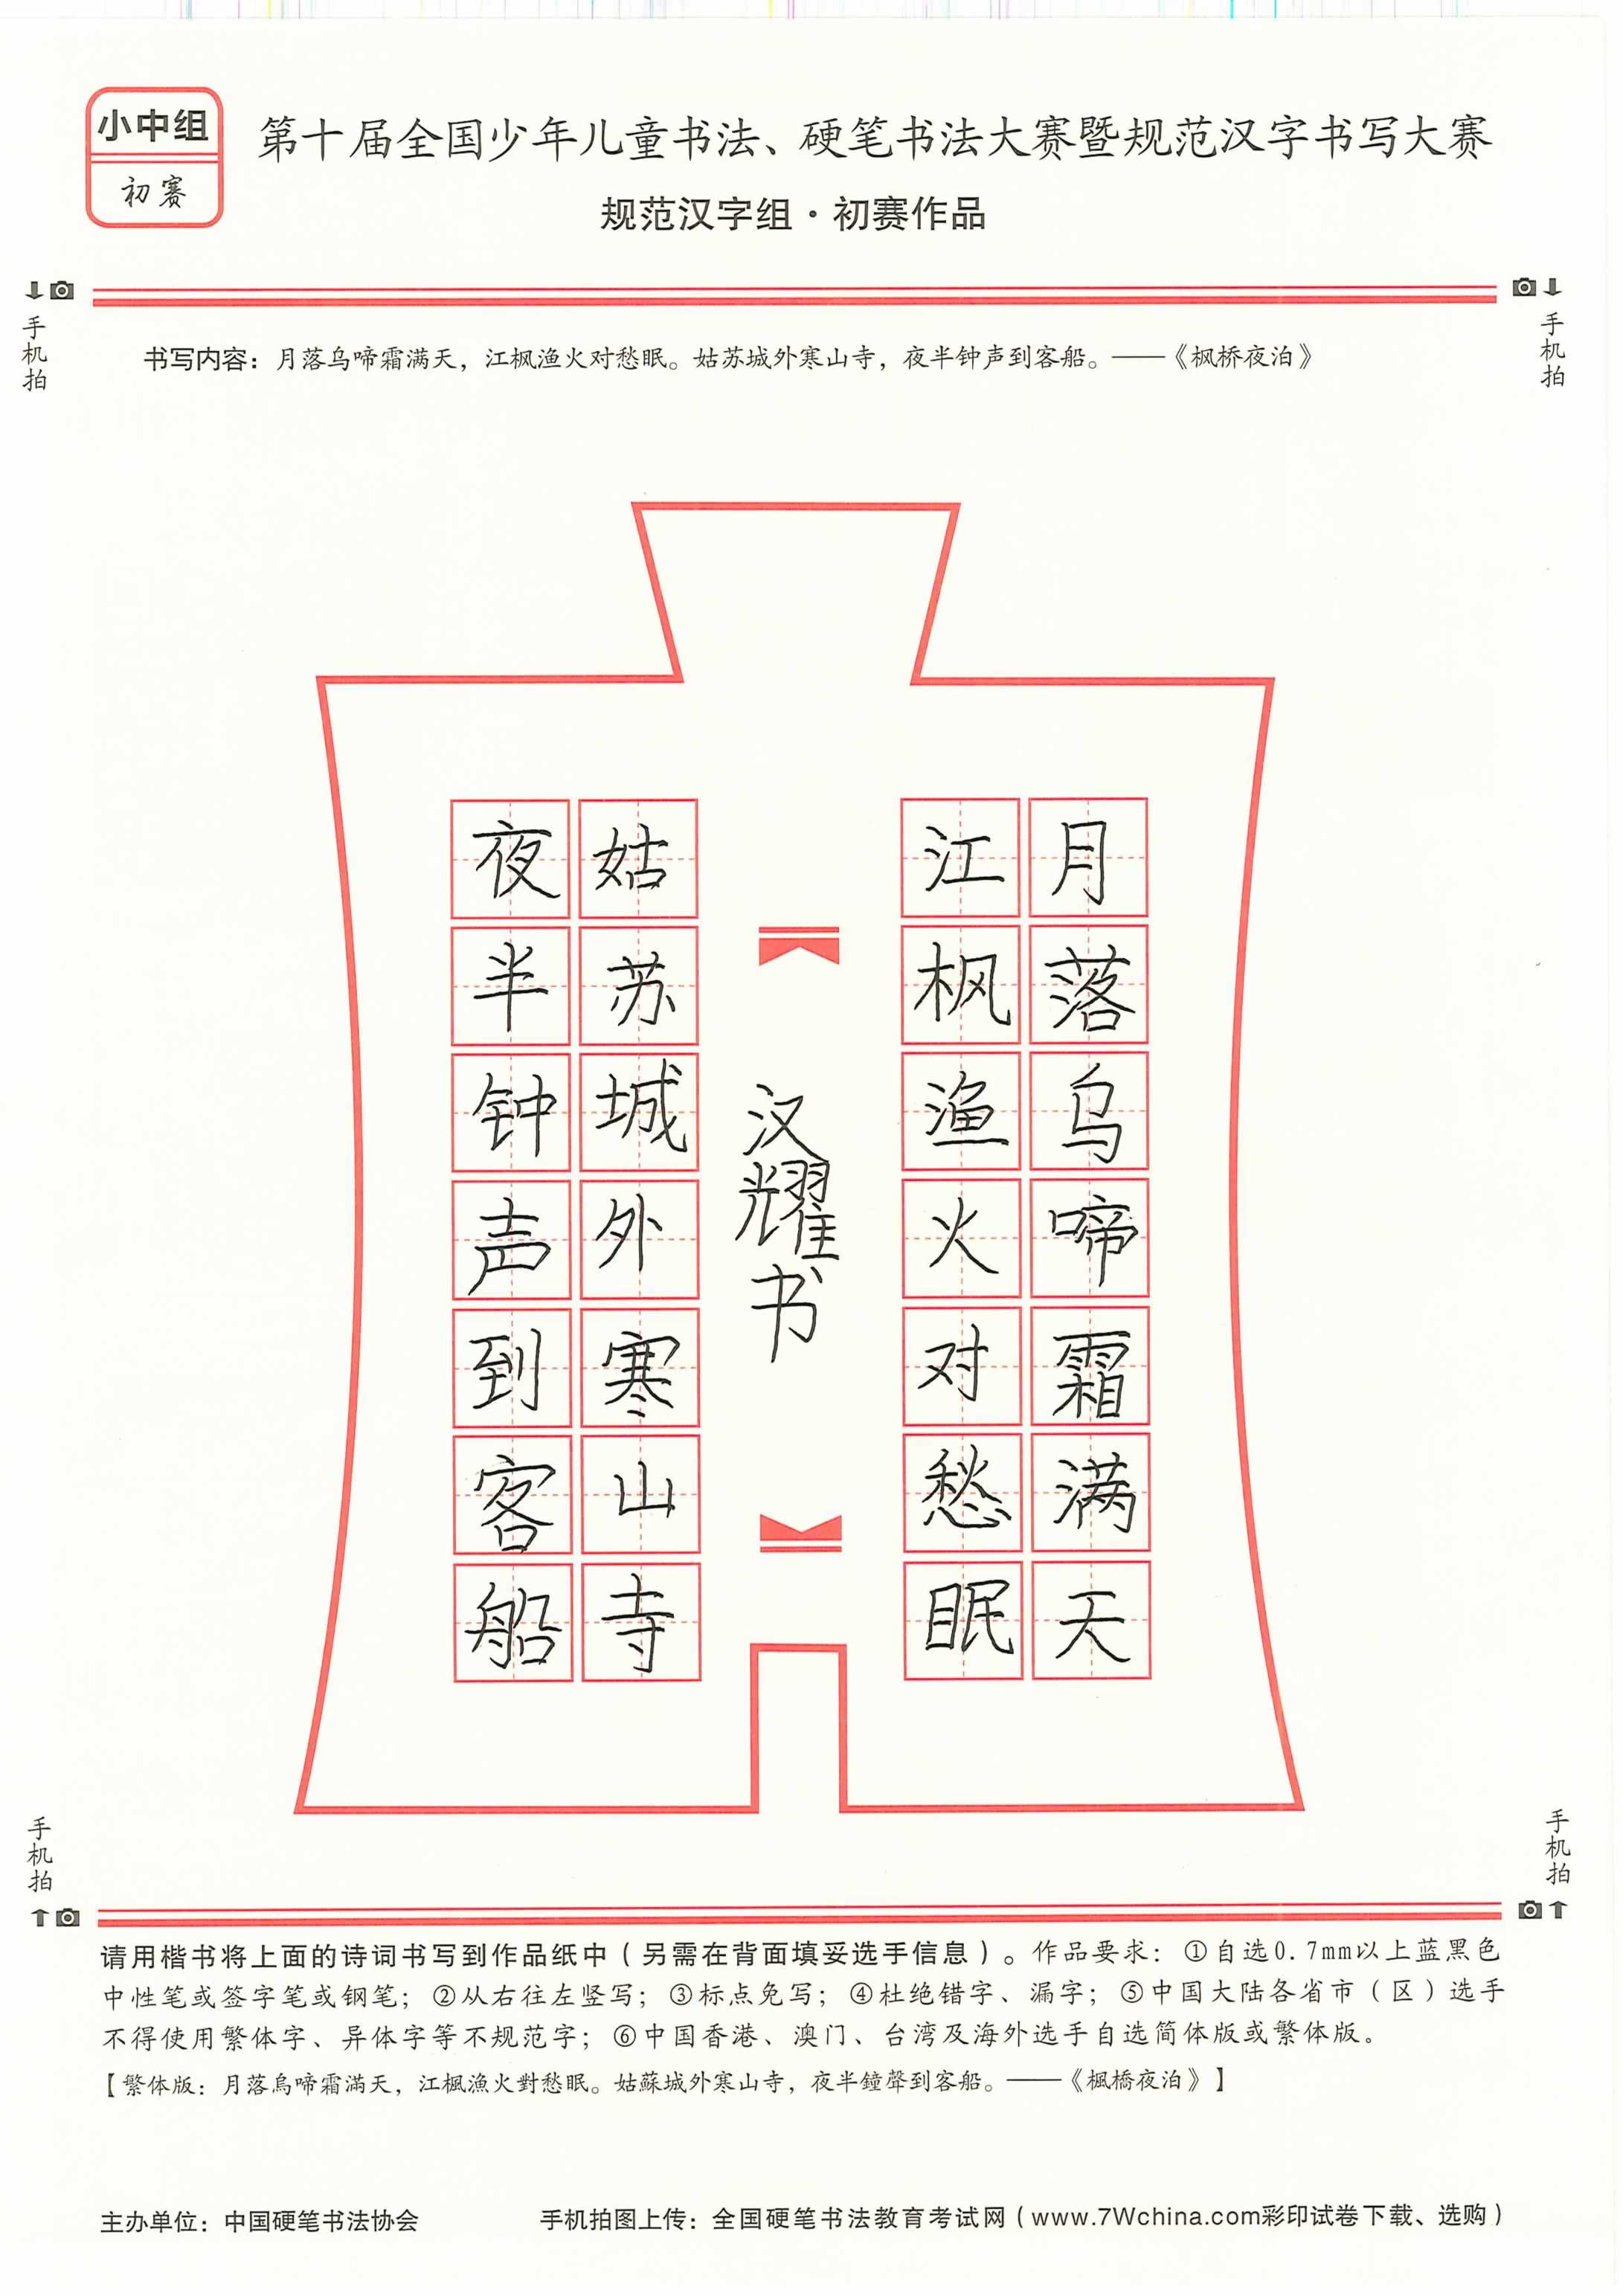 小中组
初赛
第十届全国少年儿童书法、硬笔书法大赛暨规范汉字书写大赛
规范汉字组·初赛作品
手机拍
手机拍
书写内容：月落乌啼霜满天，江枫渔火对愁眠。姑苏城外寒山寺，夜半钟声到客船。——《枫桥夜泊》
月落乌啼霜满天
江枫渔火对愁眠
汉耀书
姑苏城外寒山寺
夜半钟声到客船
手机拍
手机拍
请用楷书将上面的诗词书写到作品纸中（另需在背面填妥选手信息）。作品要求：①自选0.7mm以上蓝黑色
中性笔或签字笔或钢笔；②从右往左竖写；③标点免写；④杜绝错字、漏字；⑤中国大陆各省市（区）选手
不得使用繁体字、异体字等不规范字；⑥中国香港、澳门、台湾及海外选手自选简体版或繁体版。
【繁体版：月落烏啼霜滿天，江楓漁火對愁眠。姑蘇城外寒山寺，夜半鐘聲到客船。——《楓橋夜泊》】
主办单位：中国硬笔书法协会
手机拍图上传：全国硬笔书法教育考试网（www.7Wchina.com彩印试卷下载、选购）